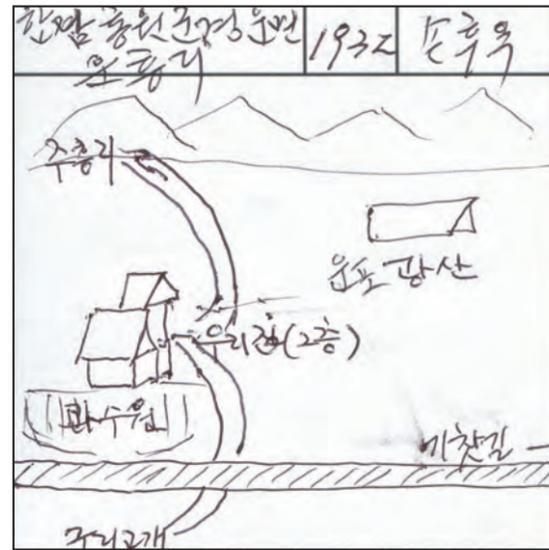 함남 홍원군 경운면
운흥리
1932
손후옥
주흥리
운포광산
우리집(2층)
과수원
기찻길
구리고개